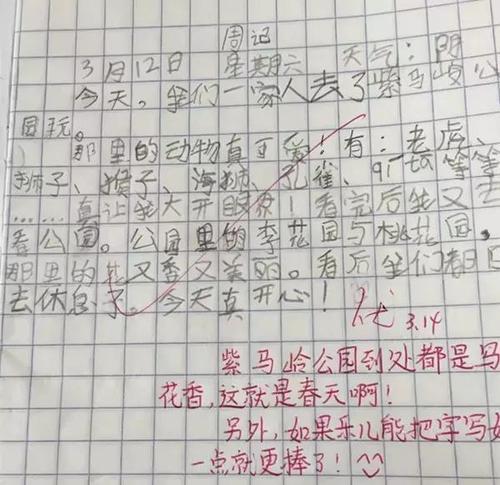 周记
3月12日 星期六 天气：阴
今天，我们一家人去了紫马岭公
园玩。
那里的动物真可爱！有：老虎、
狮子、猴子、海狮、孔雀、等等
……真让我大开眼界！看完后我又去
看公园。公园里的李花园与桃花园，
那里的花又香又美丽。看后我们都回
去休息了。今天真开心！
优 3.14
紫马岭公园到处都是鸟
花香，这就是春天啊！
另外，如果乐儿能把字写好
一点就更棒了！